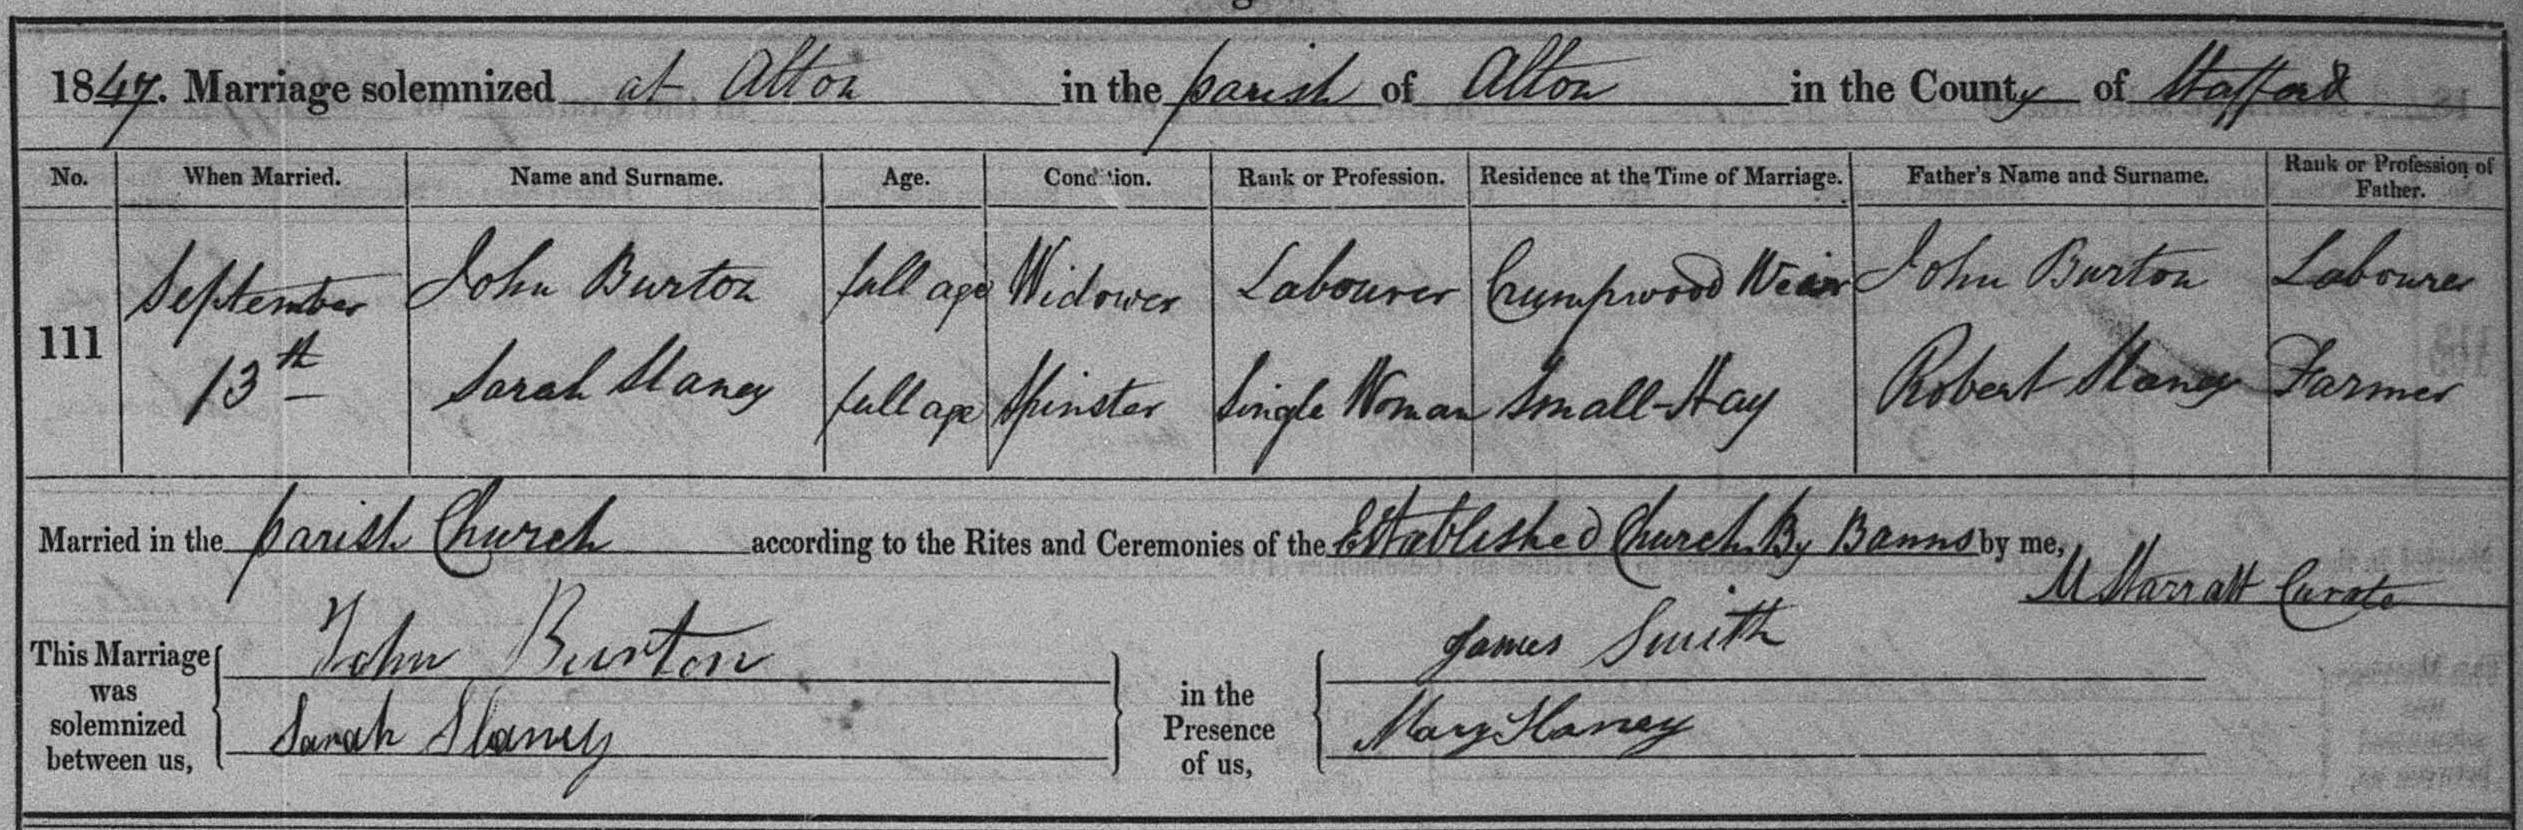 1847. Marriage solemnized at Alton in the parish of Alton in the County of Stafford
No. When Married. Name and Surname. Age. Condition. Rank or Profession. Residence at the Time of Marriage. Father's Name and Surname. Rank or Profession of Father.
111 September 13th
John Burton full age Widower Labourer Crumpwood Weir John Burton Labourer
Sarah Slaney full age Spinster Single Woman Small-Hay Robert Slaney Farmer
Married in the parish Church according to the Rites and Ceremonies of the Established Church By Banns by me,
Curate
This Marriage was solemnized between us,
John Burton
Sarah Slaney
in the Presence of us,
James Smith
Mary Slaney